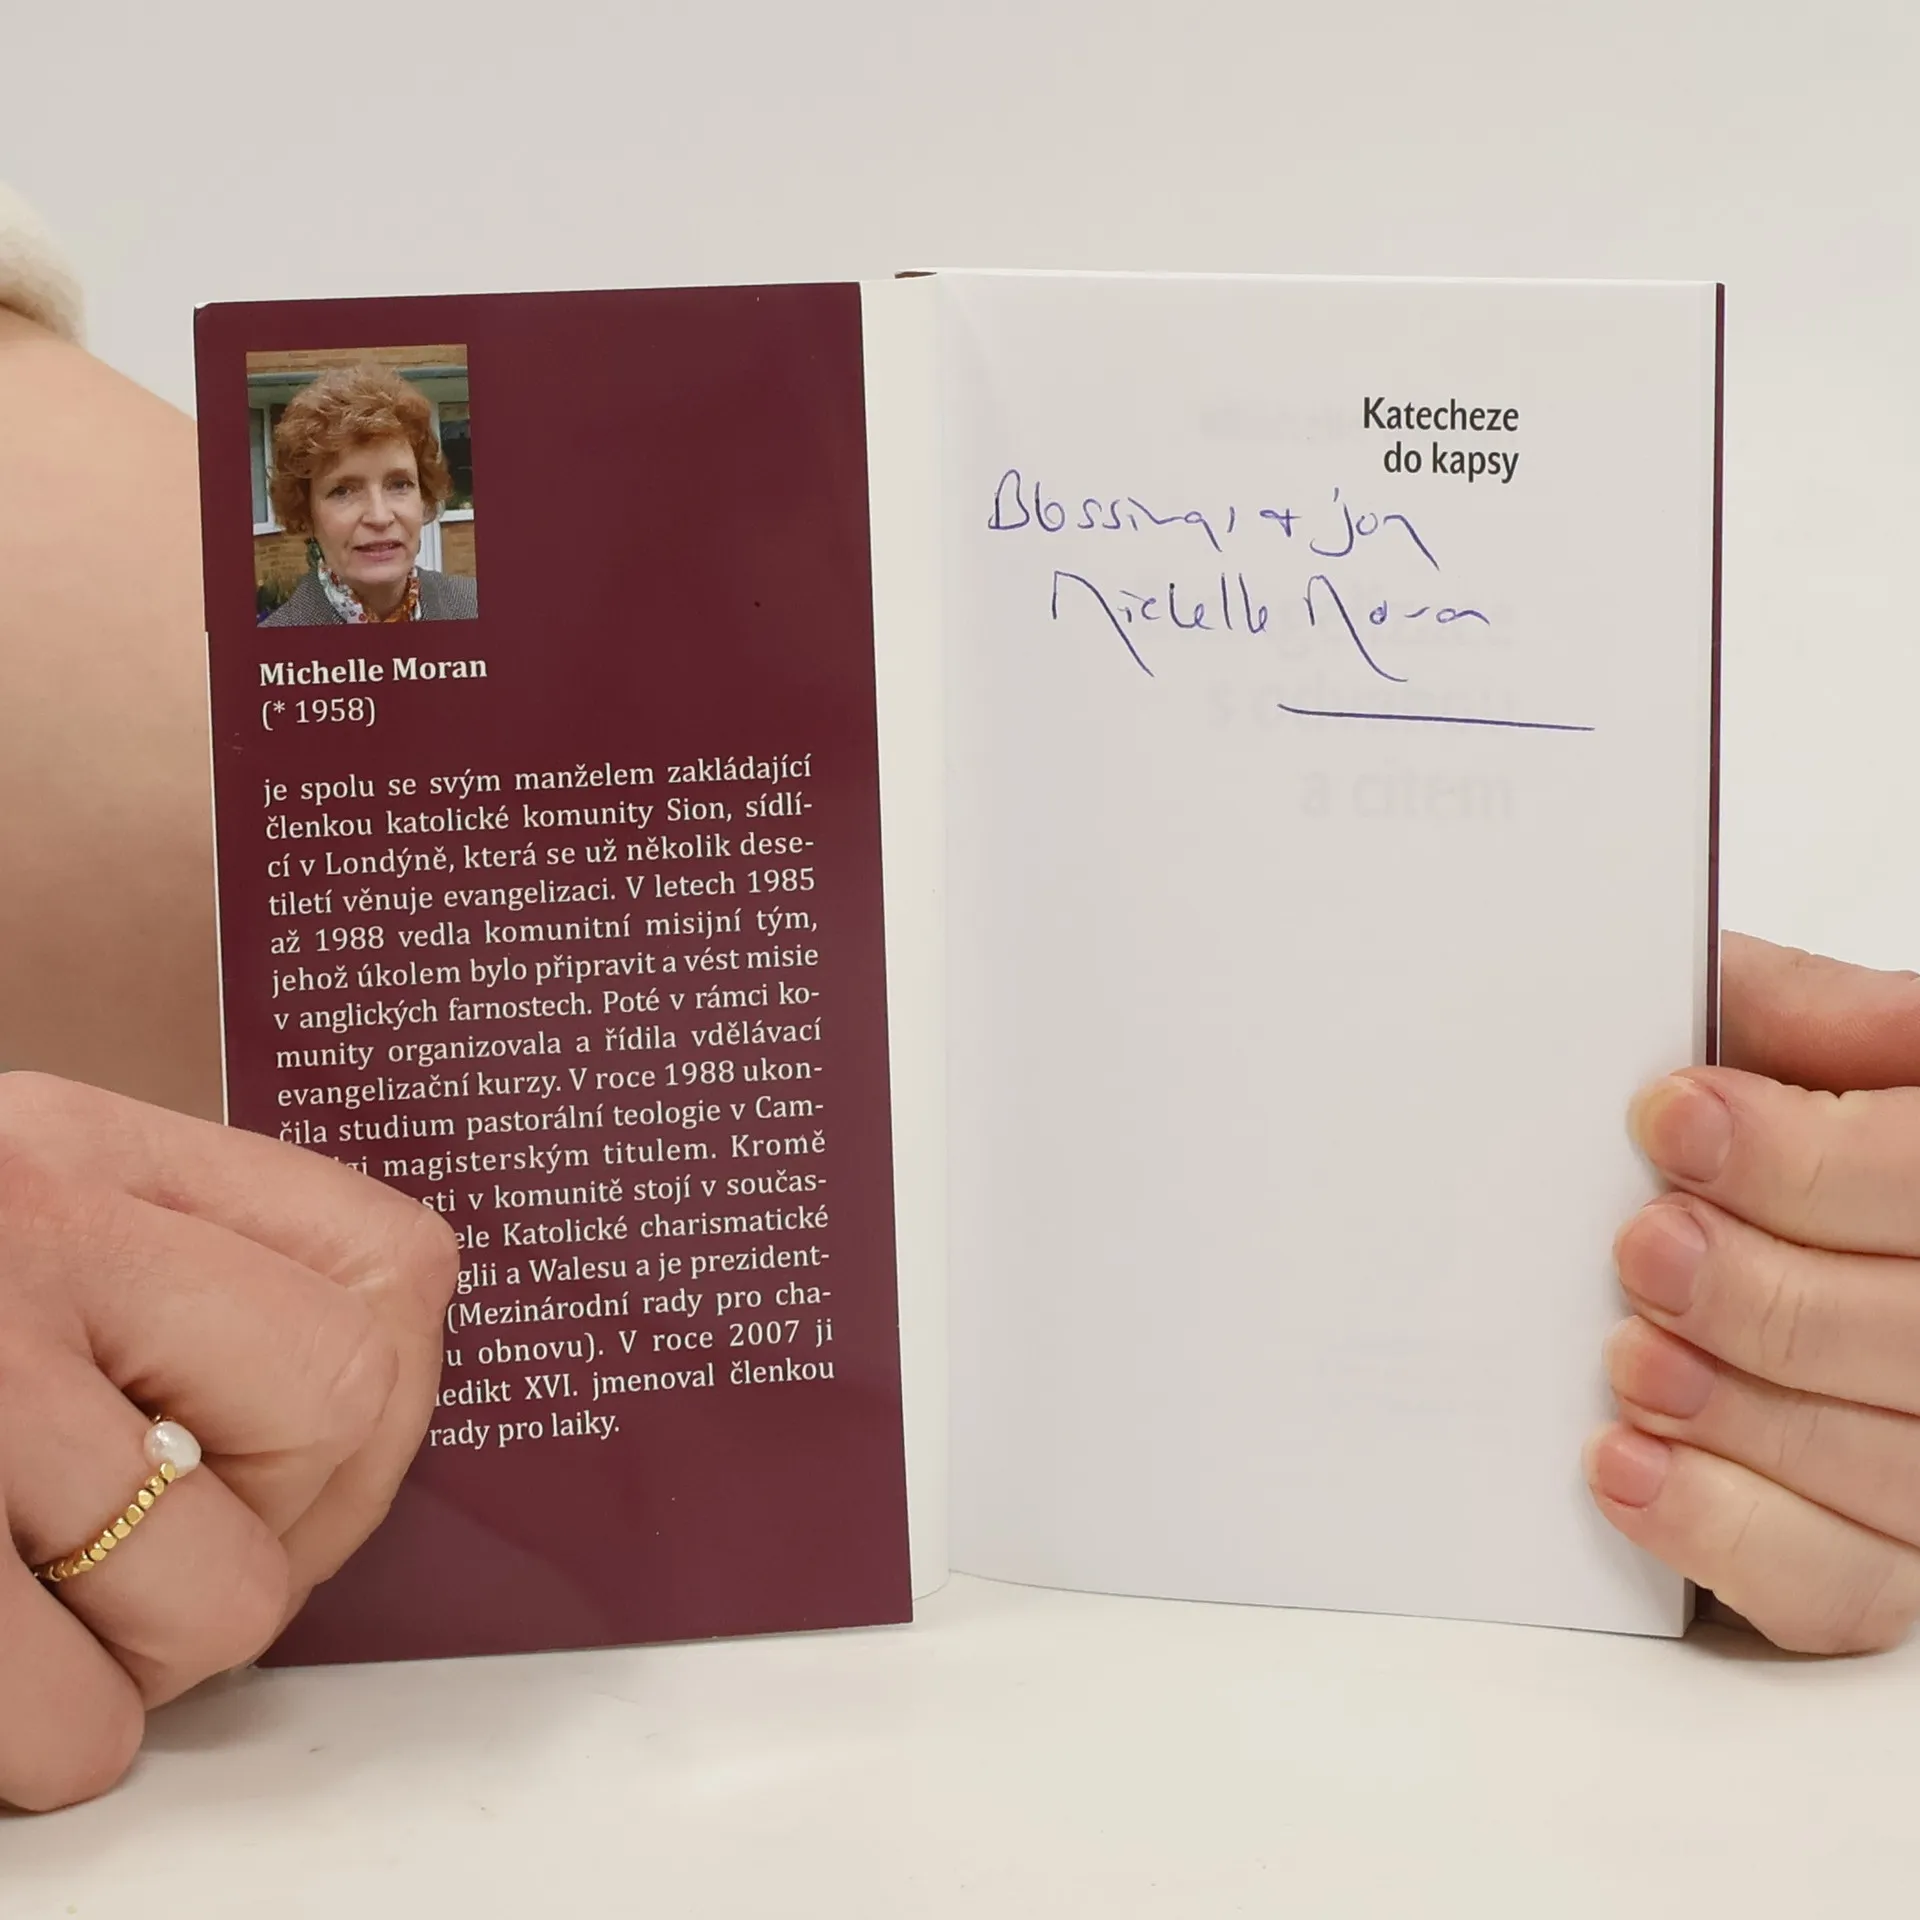 Michelle Moran
(* 1958)
je spolu se svým manželem zakládající
členkou katolické komunity Sion, sídlí-
cí v Londýně, která se už několik dese-
tiletí věnuje evangelizaci. V letech 1985
až 1988 vedla komunitní misijní tým,
jehož úkolem bylo připravit a vést misie
v anglických farnostech. Poté v rámci ko-
munity organizovala a řídila vdělávací
evangelizační kurzy. V roce 1988 ukon-
čila studium pastorální teologie v Cam-
magisterským titulem. Kromě
v komunitě stojí v součas-
Katolické charismatické
a Walesu a je prezident-
(Mezinárodní rady pro cha-
obnovu). V roce 2007 ji
XVI. jmenoval členkou
rady pro laiky.
Katecheze
do kapsy
Blessings + joy
Michelle Moran
a citem